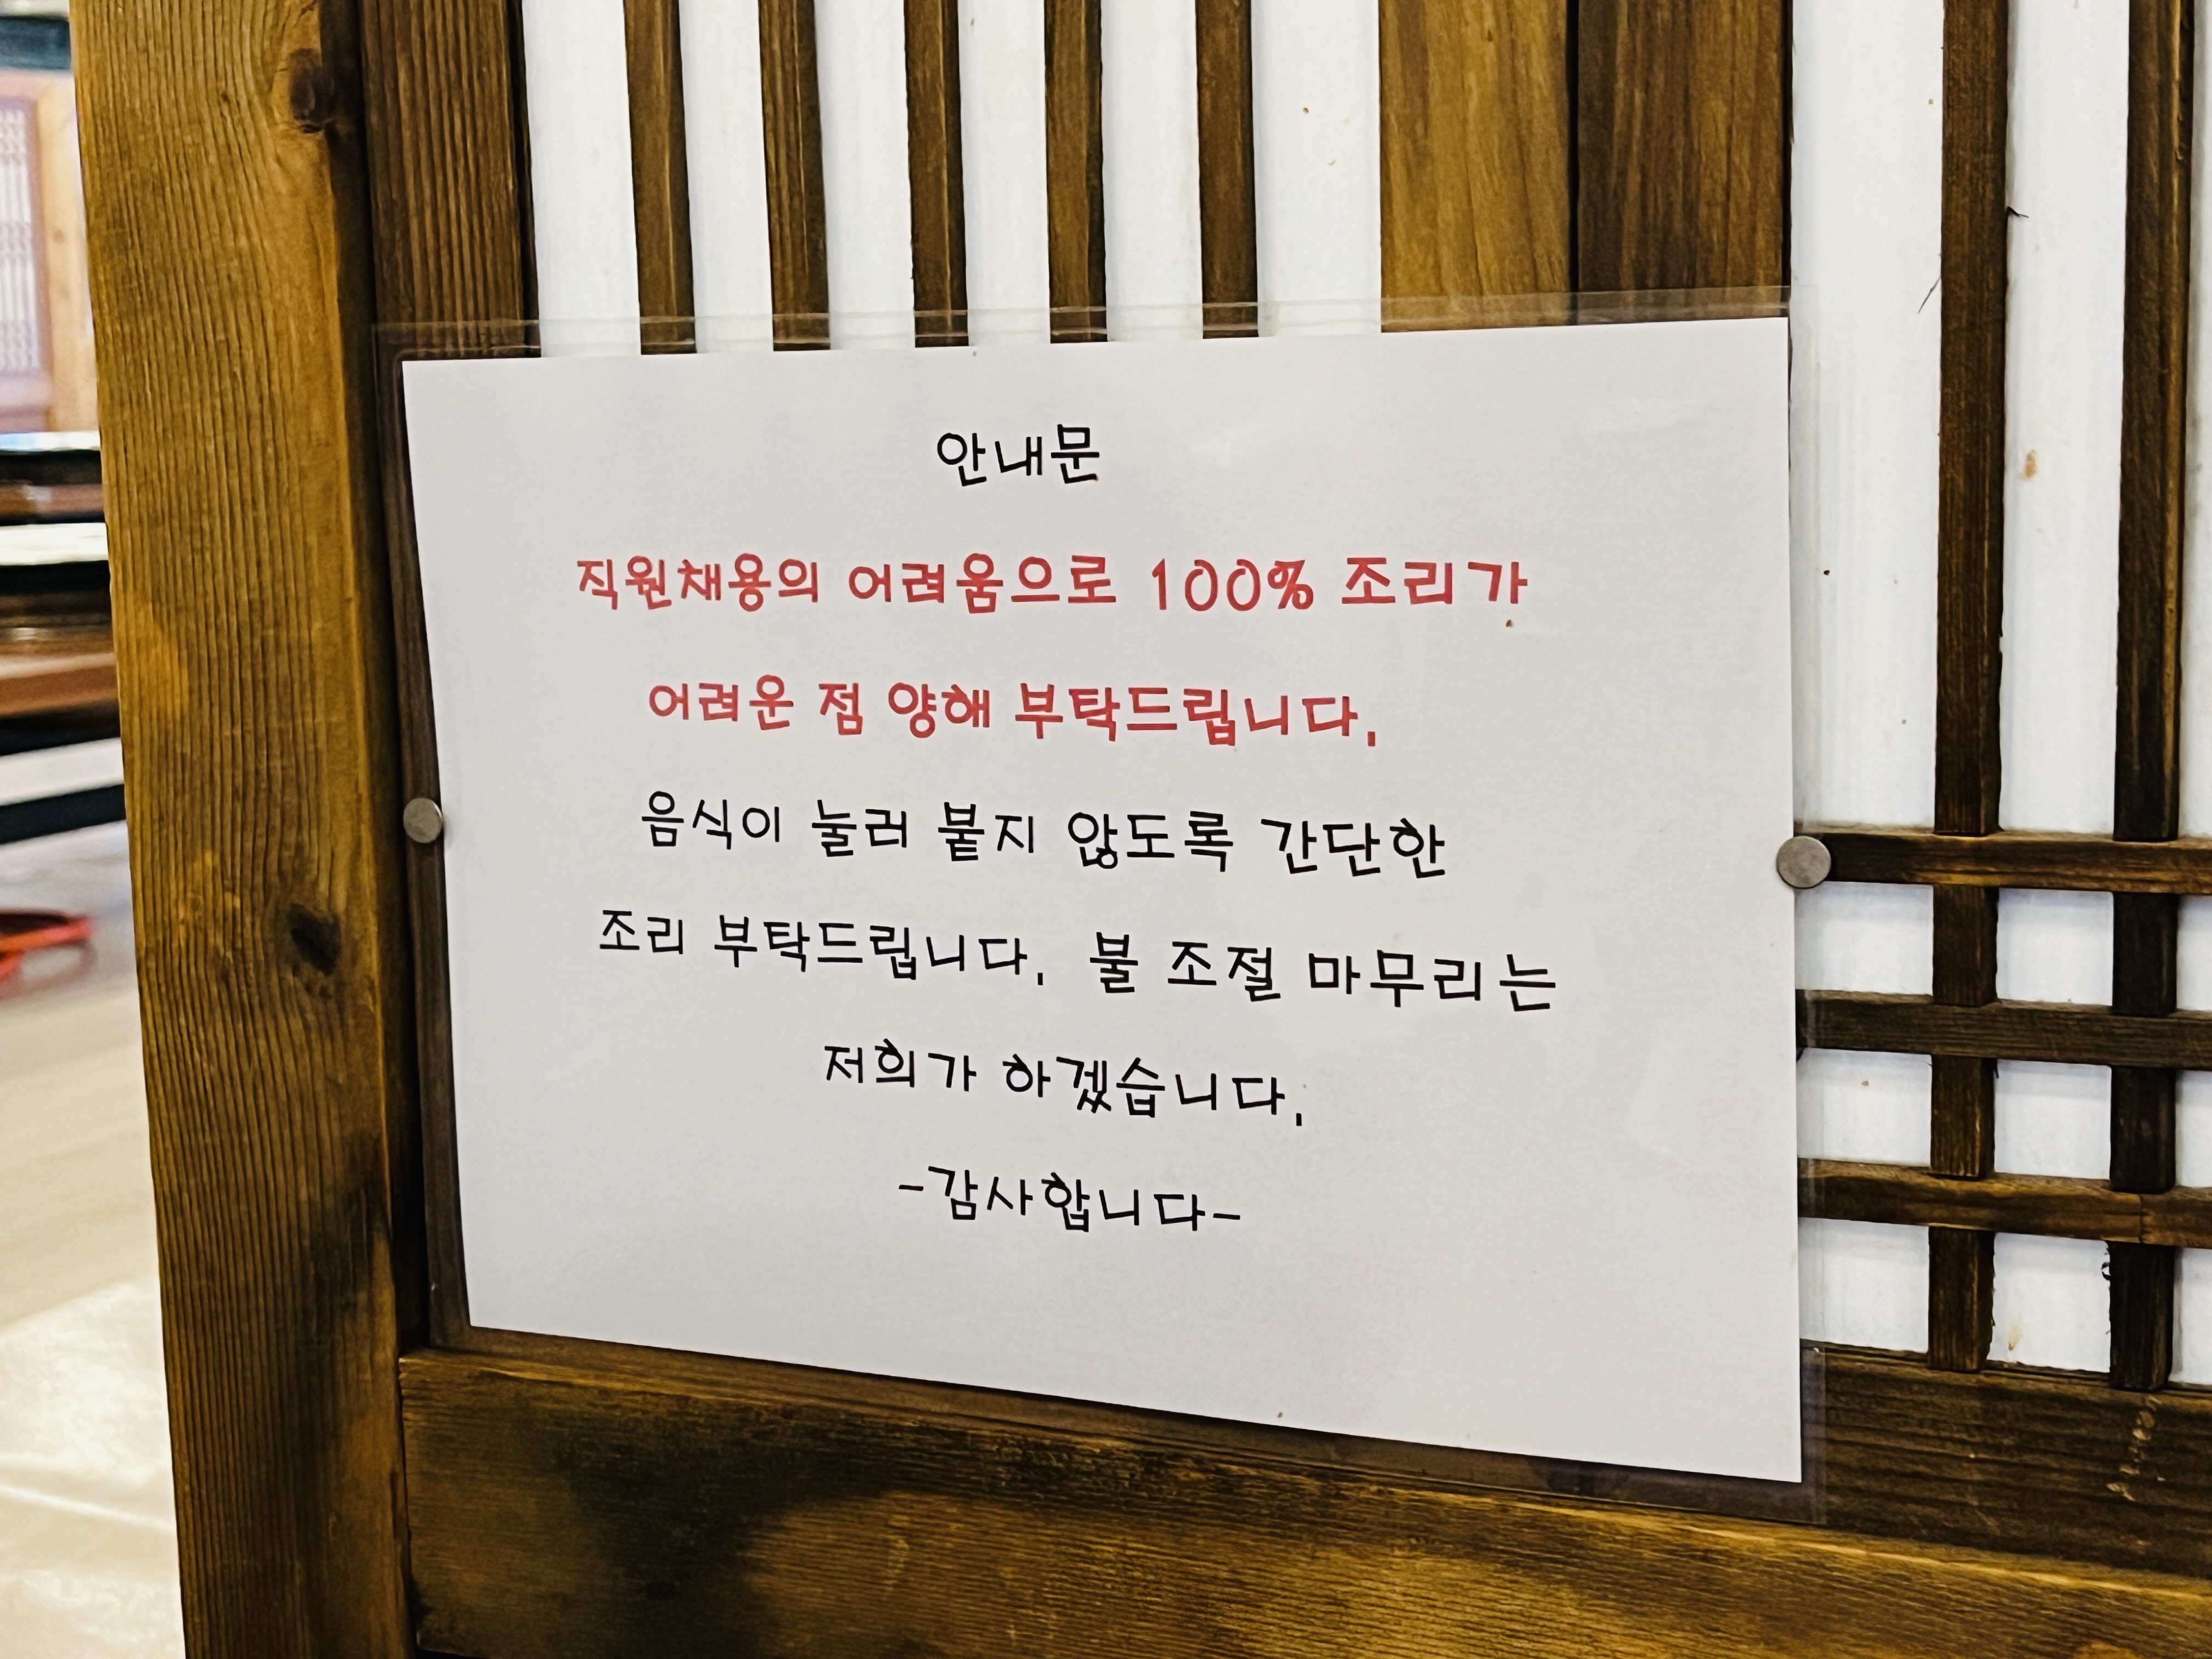 안내문
직원채용의 어려움으로 100% 조리가
어려운 점 양해 부탁드립니다.
음식이 눌러 붙지 않도록 간단한
조리 부탁드립니다. 불 조절 마무리는
저희가 하겠습니다.
-감사합니다-